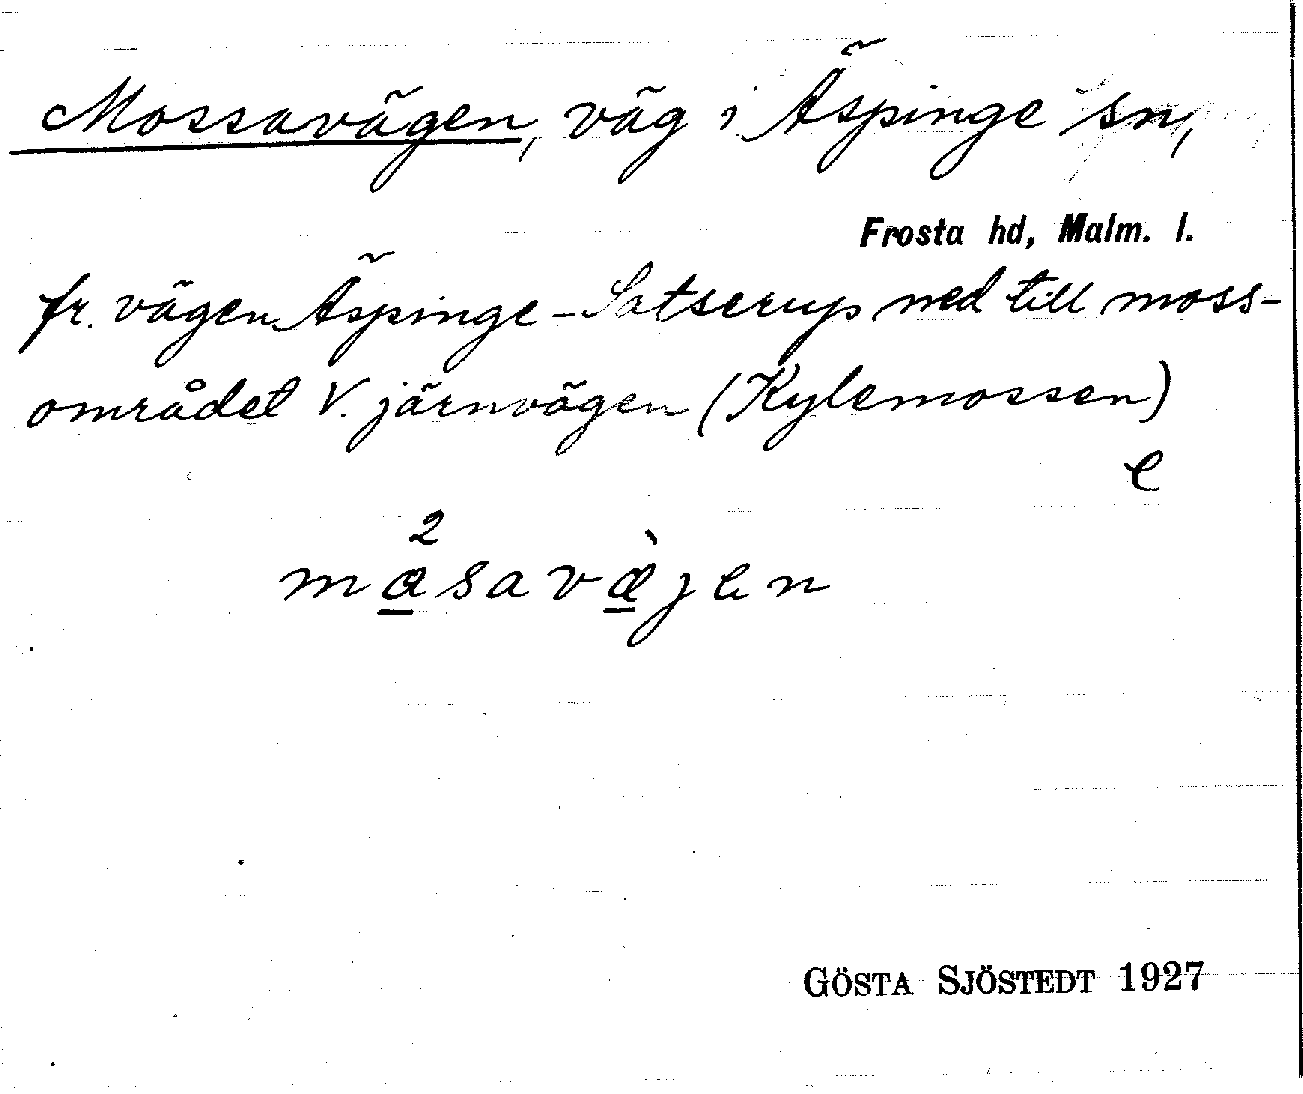 Mossavägen, väg i Äspinge sn,
Frosta hd, Malm. l.
fr. vägen Äspinge-Satserup ned till moss-
området V. järnvägen (Kylemossen)
e
2 `
masavæjen
GÖSTA SJÖSTEDT 1927